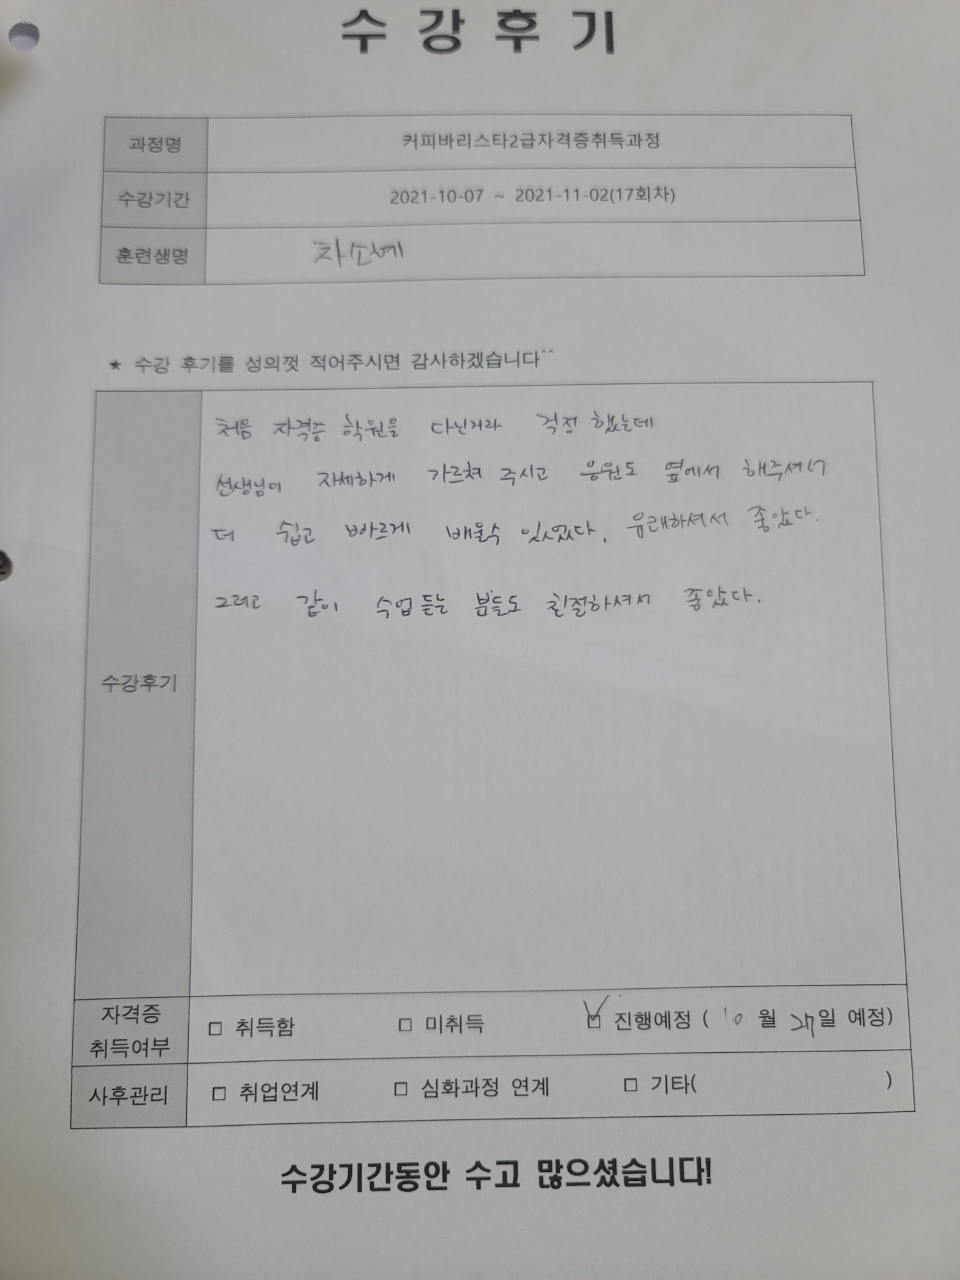 수강후기
과정명 커피바리스타2급자격증취득과정
수강기간 2021-10-07 ~ 2021-11-02(17회차)
훈련생명 차소예
★ 수강 후기를 성의껏 적어주시면 감사하겠습니다^^
처음 자격증 학원을 다닌거라 걱정 했는데
선생님이 자세하게 가르쳐 주시고 응원도 옆에서 해주셔서
더 쉽고 빠르게 배울수 있었다. 유쾌하셔서 좋았다.
그리고 같이 수업 듣는 분들도 친절하셔서 좋았다.
수강후기
자격증
취득여부
□ 취득함 □ 미취득 ☑ 진행예정 ( 10 월 27일 예정)
사후관리 □ 취업연계 □ 심화과정 연계 □ 기타( )
수강기간동안 수고 많으셨습니다!